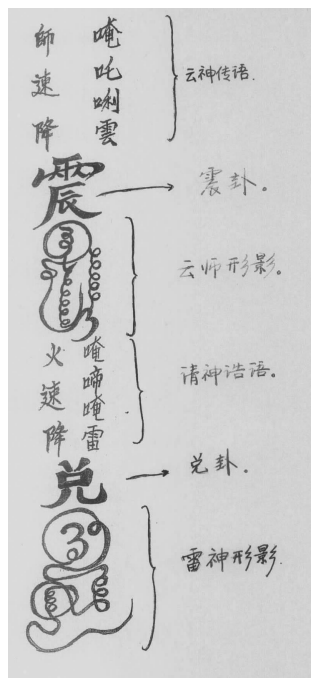 唵吒唎雲
師速降
云神传语.
震
震卦。
云师形影。
唵啼唵雷
火速降
请神诰语。
兑
兑卦.
雷神形影.